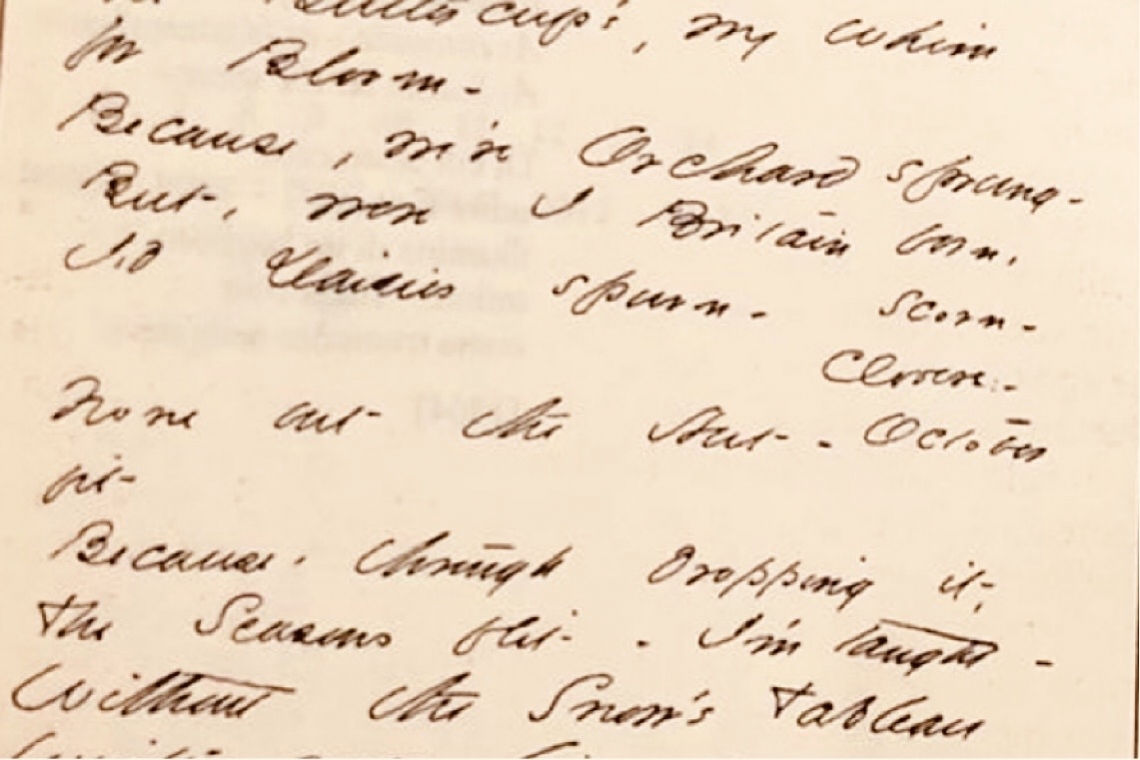 Buttercup's, my whim
for Bloom -
Because, we're Orchard sprung -
But, were I Britain born,
I'd Daisies spurn - scorn -
Clover -
None but the Nut - October
fit -
Because, through dropping it,
The Seasons flit - I'm taught -
Without the Snow's Tableau